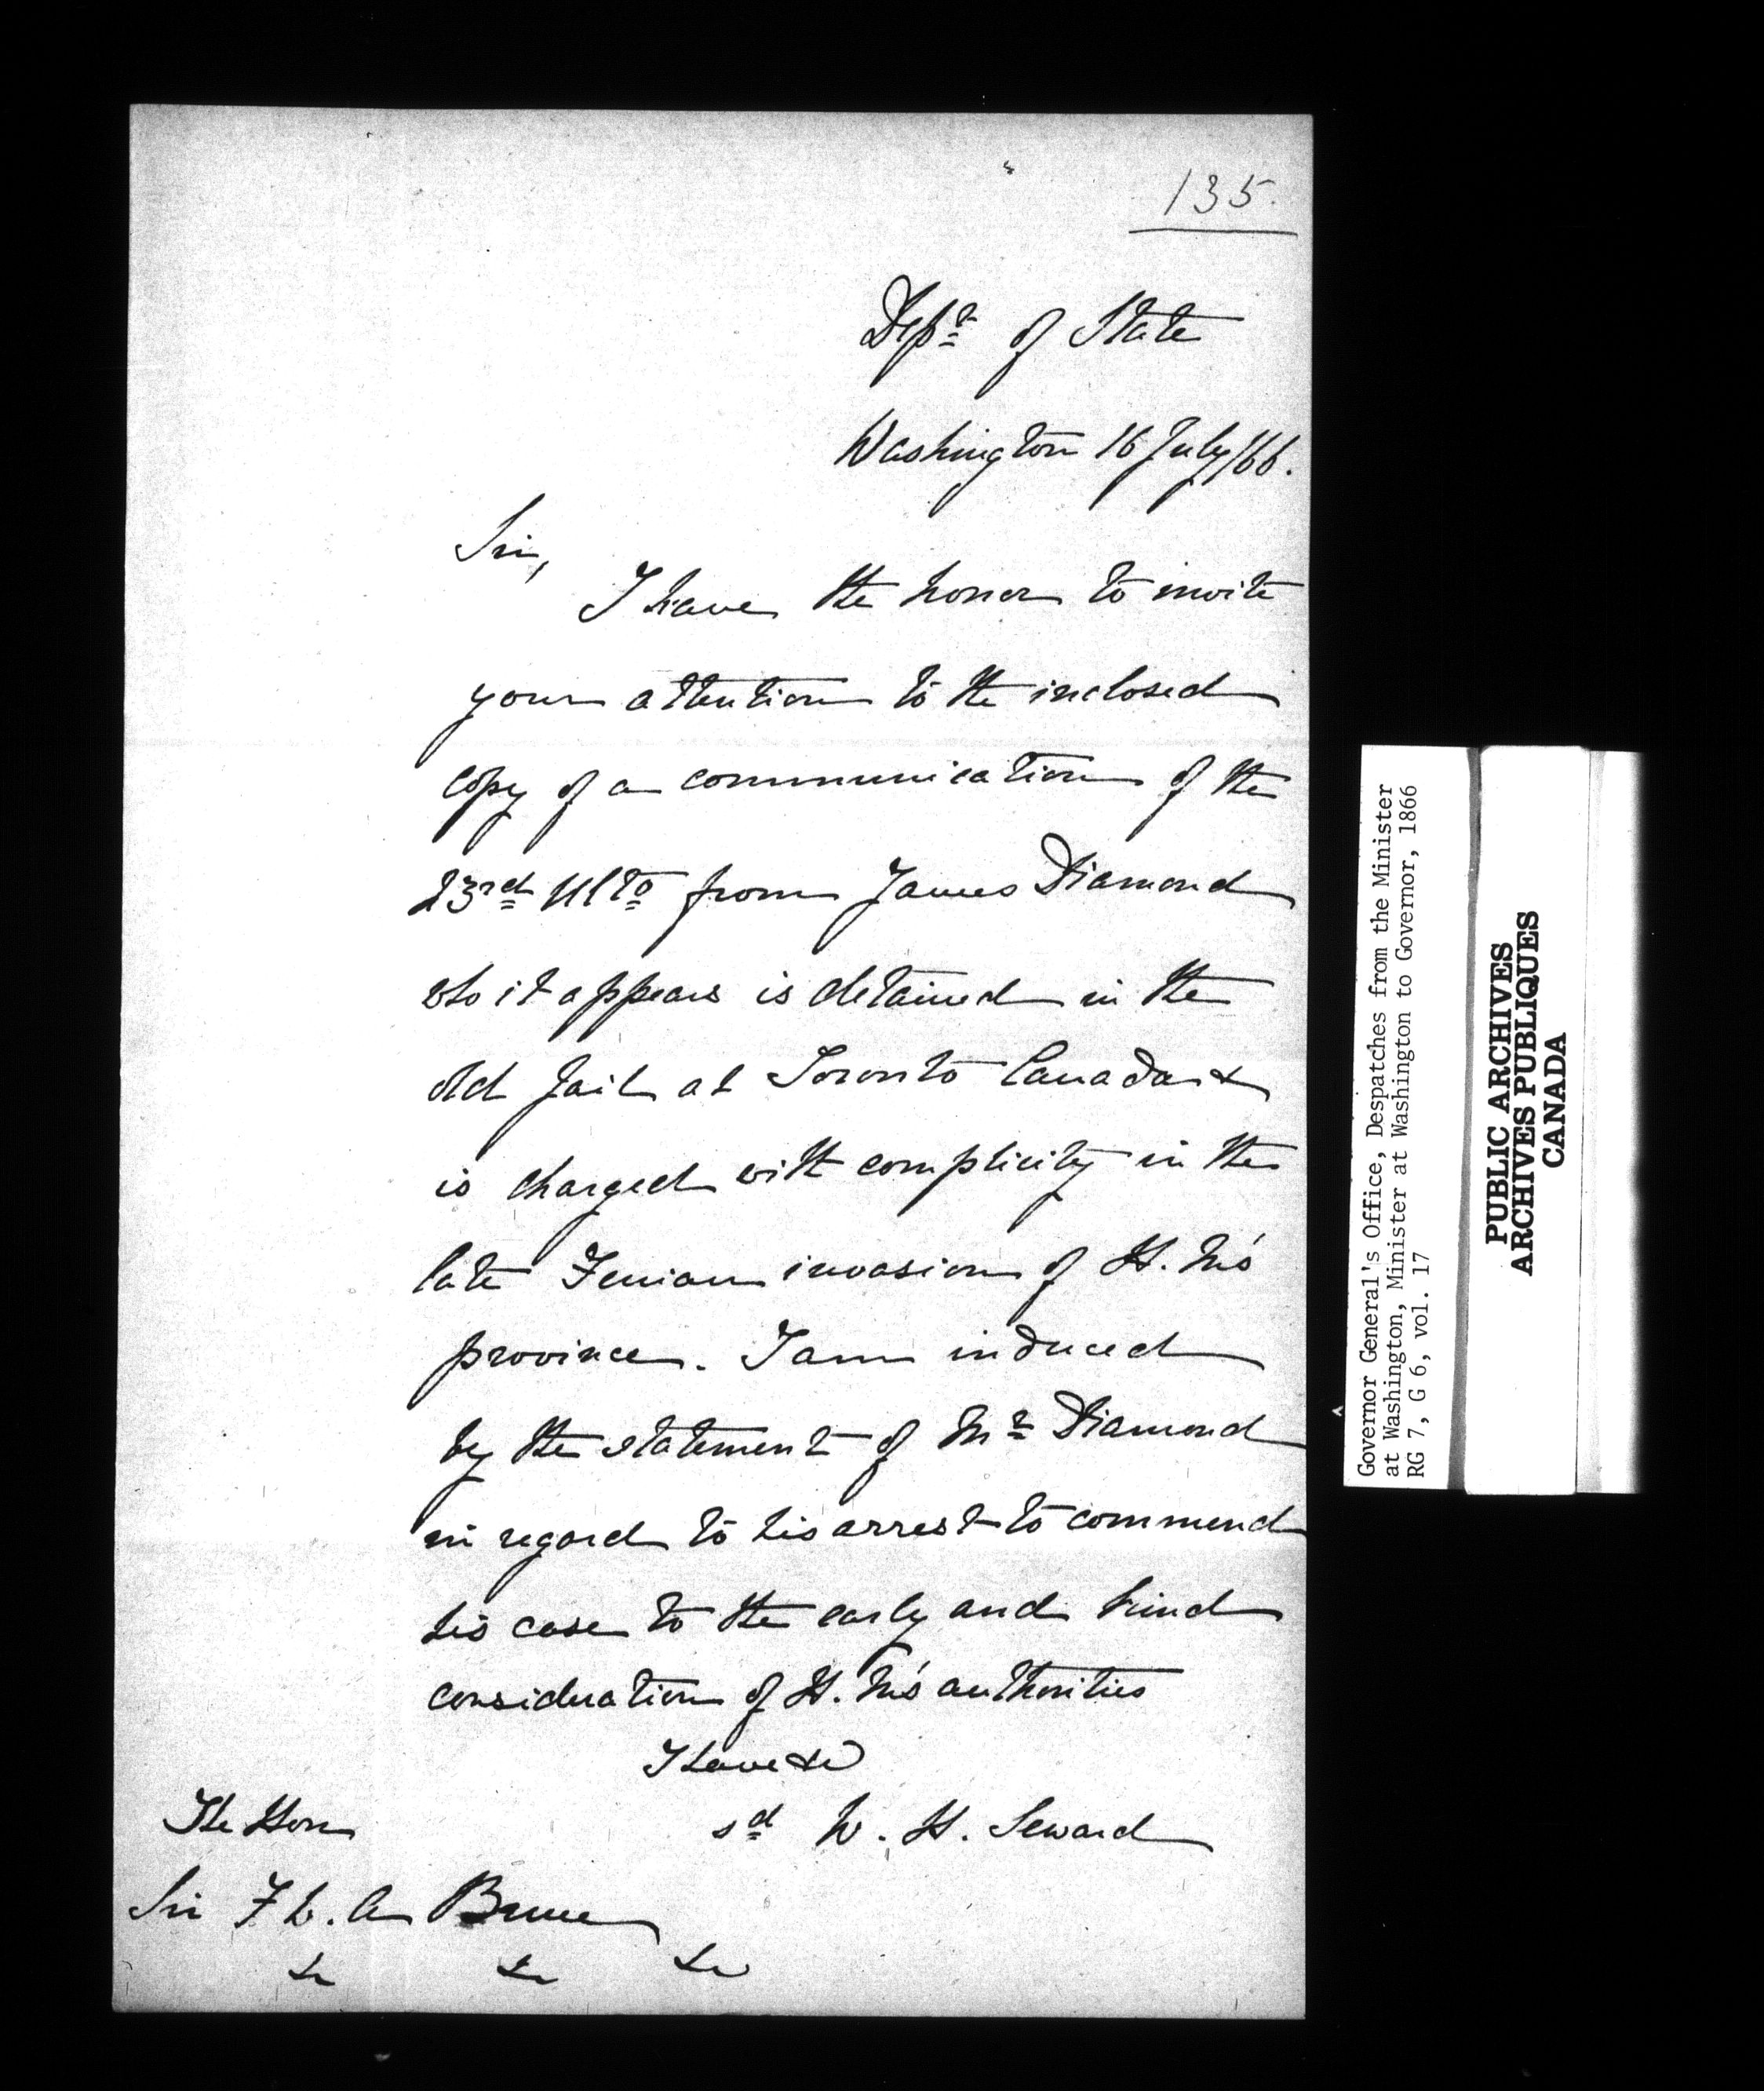 135.
Dept of State
Washington 16 July/66.
Sir,
I have the honor to invite
your attention to the inclosed
copy of a communication of the
23rd Ulto from James Diamond
who it appears is detained in the
old Jail at Toronto Canada &
is charged with complicity in the
late Fenian invasion of H. M's
province. I am induced
by the statement of Mr Diamond
in regard to his arrest to commend
his case to the early and kind
consideration of H. M's authorities
I have &c
sd W. H. Seward
The Hon
Sir F W. A Bruce
&c &c &c
Governor General's Office, Despatches from the Minister
at Washington, Minister at Washington to Governor, 1866
RG 7, G 6, vol. 17
PUBLIC ARCHIVES
ARCHIVES PUBLIQUES
CANADA